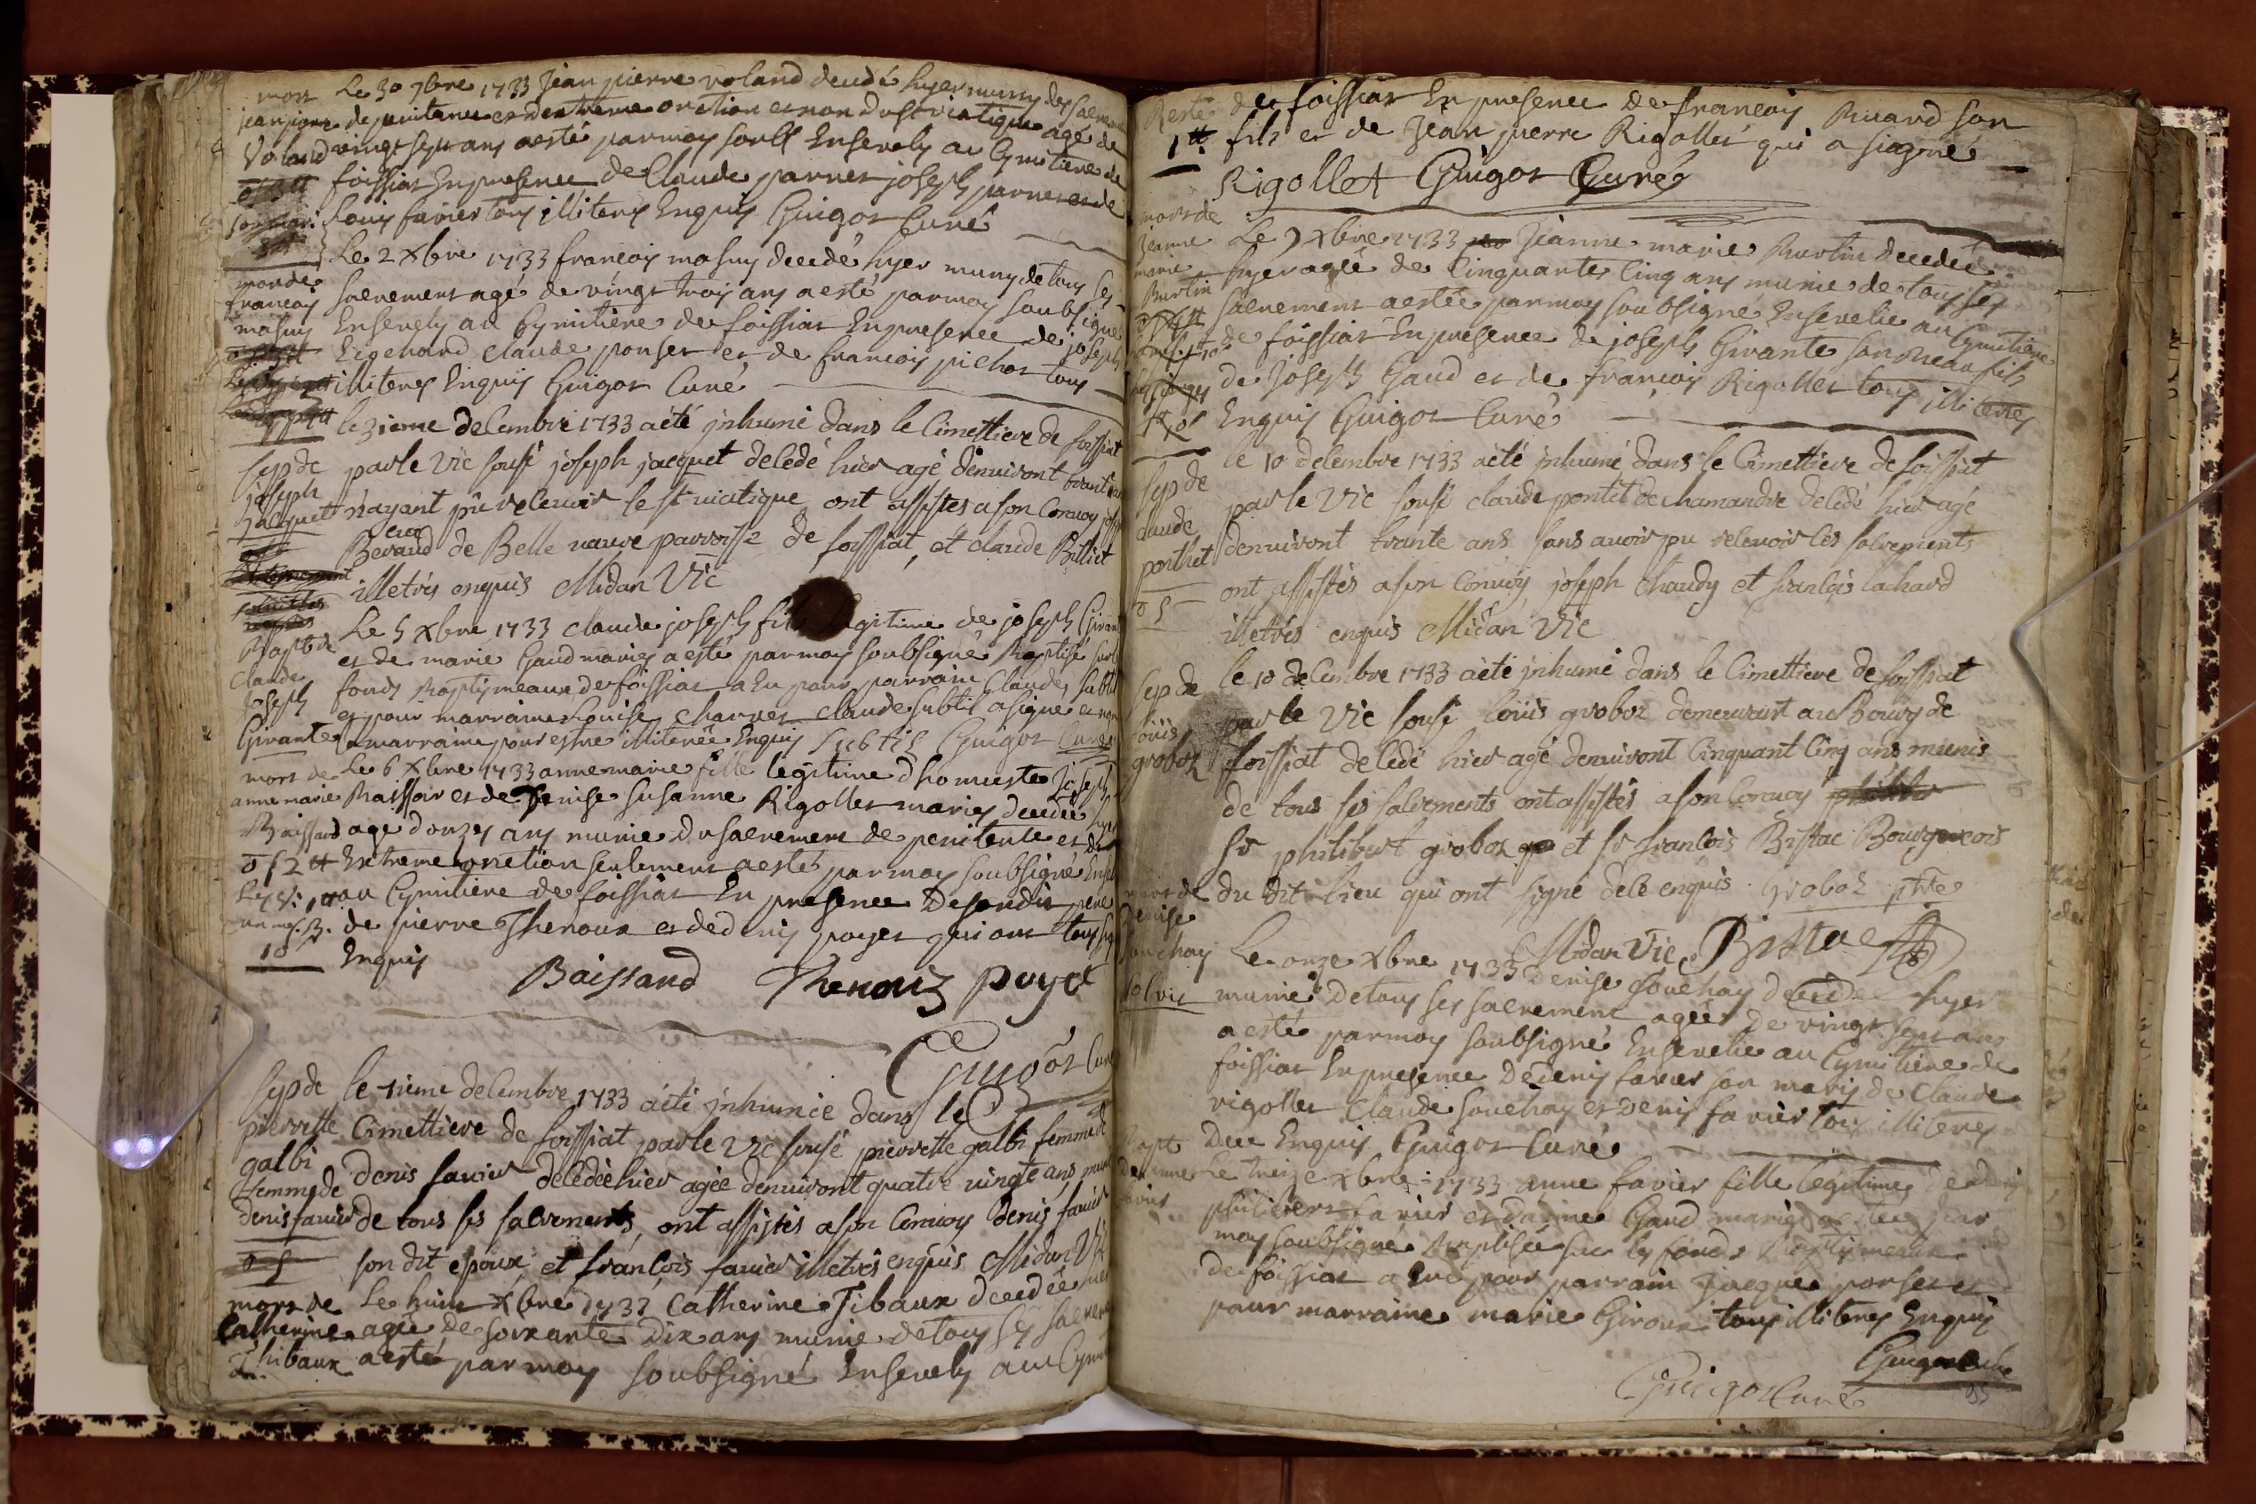 mort
jean pierre
Voland
Le 30 9bre 1733 Jean pierre voland decedé hyer muny des sacrem
de penitence et dextreme onction et non du st viatique agé de
vingt sept ans a esté par moy soubs Ensevely au Cymitiere de
foissiat En presence de Claude parner joseph parner et de
Louis favier tous illiterés Enquis Guigot Curé
mort de
francois
masuy
Le 2 Xbre 1733 francois masuy decedé hyer muny de tous ses
sacrement agé de vingt trois ans a esté par moy soubsigné
Ensevely au Cymitiere de foissiat En presence de joseph
Claude ponset et de francois pichot tous
illiterés Enquis Guigot Curé
sep de
joseph
jacquett
le 3ieme decembre 1733 a été inhumé dans le Cimettiere de foissiat
par le Vic sousé joseph jacquet decedé hier agé denviront trant
n'ayant pû recevoir le st viatique ont assistes a son Convoy
Beraud de Belle vauve parroisse de foissiat, et claude Billiet
illetrés enquis Midan Vic
Bapt de
Claude
Joseph
Givante
Le 5 Xbre 1733 claude joseph fils legitime de joseph Givan
et de marie Gaud mariés a esté par moy soubsigné Baptisé sur
fonds Baptismeaux de foissiat a Eu pour parrain Claude subtil
et pour marraine Louise charver claude subtil a signé et non
la marraine pour estre illiterée Enquis Subtil Guigot Curé
mort de
anne marie
Baissard
Le 6 Xbre 1733 anne marie fille legitime d'honneste joseph
Baissar et de Denise Susanne Rigollet mariés decedée hyer
age d'onzes ans munie du sacrement de penitence et de
Extreme onction seulement a esté par moy soubsigné Ense
au Cymitiere de foissiat En presence de sondit pere
de pierre Thenoux et de denis poyet qui ont tous sig
Enquis
Baissand Thenoux poyet
Guigot Curé
sep de
pierrette
galbi
femme de
denis favier
le 7ieme decembre 1733 a été inhumée dans le
Cimettiere de foissiat par le Vic sousé pierrette galbi femme de
denis favier decedée hier agée denviront quatre vingts ans muni
de tous ses sacrements, ont assistés a son Convoy denis favier
son dit epoux et francois favier illetrés enquis Midan Vic
mort de
Catherine
Thibaux
Le huit Xbre 1733 Catherine Tibaux decedée hier
agée de soixante Dix ans munie de tous ses sacrem
a esté par moy soubsigné Ensevely au Cymi
Reste
1 tt
de foissiat En presence de francois Ruard son
fils et de Jean pierre Rigollet qui a signé
Rigollet Guigot Curé
mort de
Jeanne
marie
Burtin
Le 9 Xbre 1733 Jeanne marie Burtin decedée
hyer agée de Cinquante Cinq ans munie de tous ses
sacrement a estée par moy soubsigné Ensevelie au Cymitiere
de foissiat En presence de joseph Givante son beau fils
de Joseph Gaud et de francois Rigollet tous illiterés
Enquis Guigot Curé
sep de
claude
ponthet
le 10 decembre 1733 a été inhumé dans le Cimettiere de foissiat
par le Vic sousé claude pontet de chamandre decedé hier agé
denviront trante ans sans avoir pu recevoir les sacrements
ont assistés a son Convoy joseph chaudy et francois cachard
illetrés enquis Midan Vic
sep de
Louis
groboz
le 10 decembre 1733 a été inhumé dans le Cimettiere de foissiat
par le Vic sousé Louis groboz demeurant au Bourg de
foissiat decedé hier agé denviront Cinquant Cinq ans munis
de tous ses sacrements ont assistés a son Convoy
sr philibert groboz et sr francois Bistac Bourgeois
du dit lieu qui ont signé de ce enquis groboz ptre
Midan Vic Bistac
mort de
Denise
souchay
Le onze Xbre 1733 Denise souchay decedée hyer
munie de tous ses sacrement agée de vingt sept ans
a esté par moy soubsigné Ensevelie au Cymitiere de
foissiat En presence de denis favier son maris de Claude
rigollet Claude souchay et Denis favier tous illiterés
De ce Enquis Guigot Curé
Bapt
Le treize Xbre 1733 anne favier fille legitime de
philibert favier et danne Gaud mariés a estée par
moy soubsigné Baptisée sur les fonds Baptismeaux
de foissiat a Eu pour parrain Jacque ponset et
pour marraine marie Giroux tous illiterés Enquis
Guigot Curé
Guigot Curé